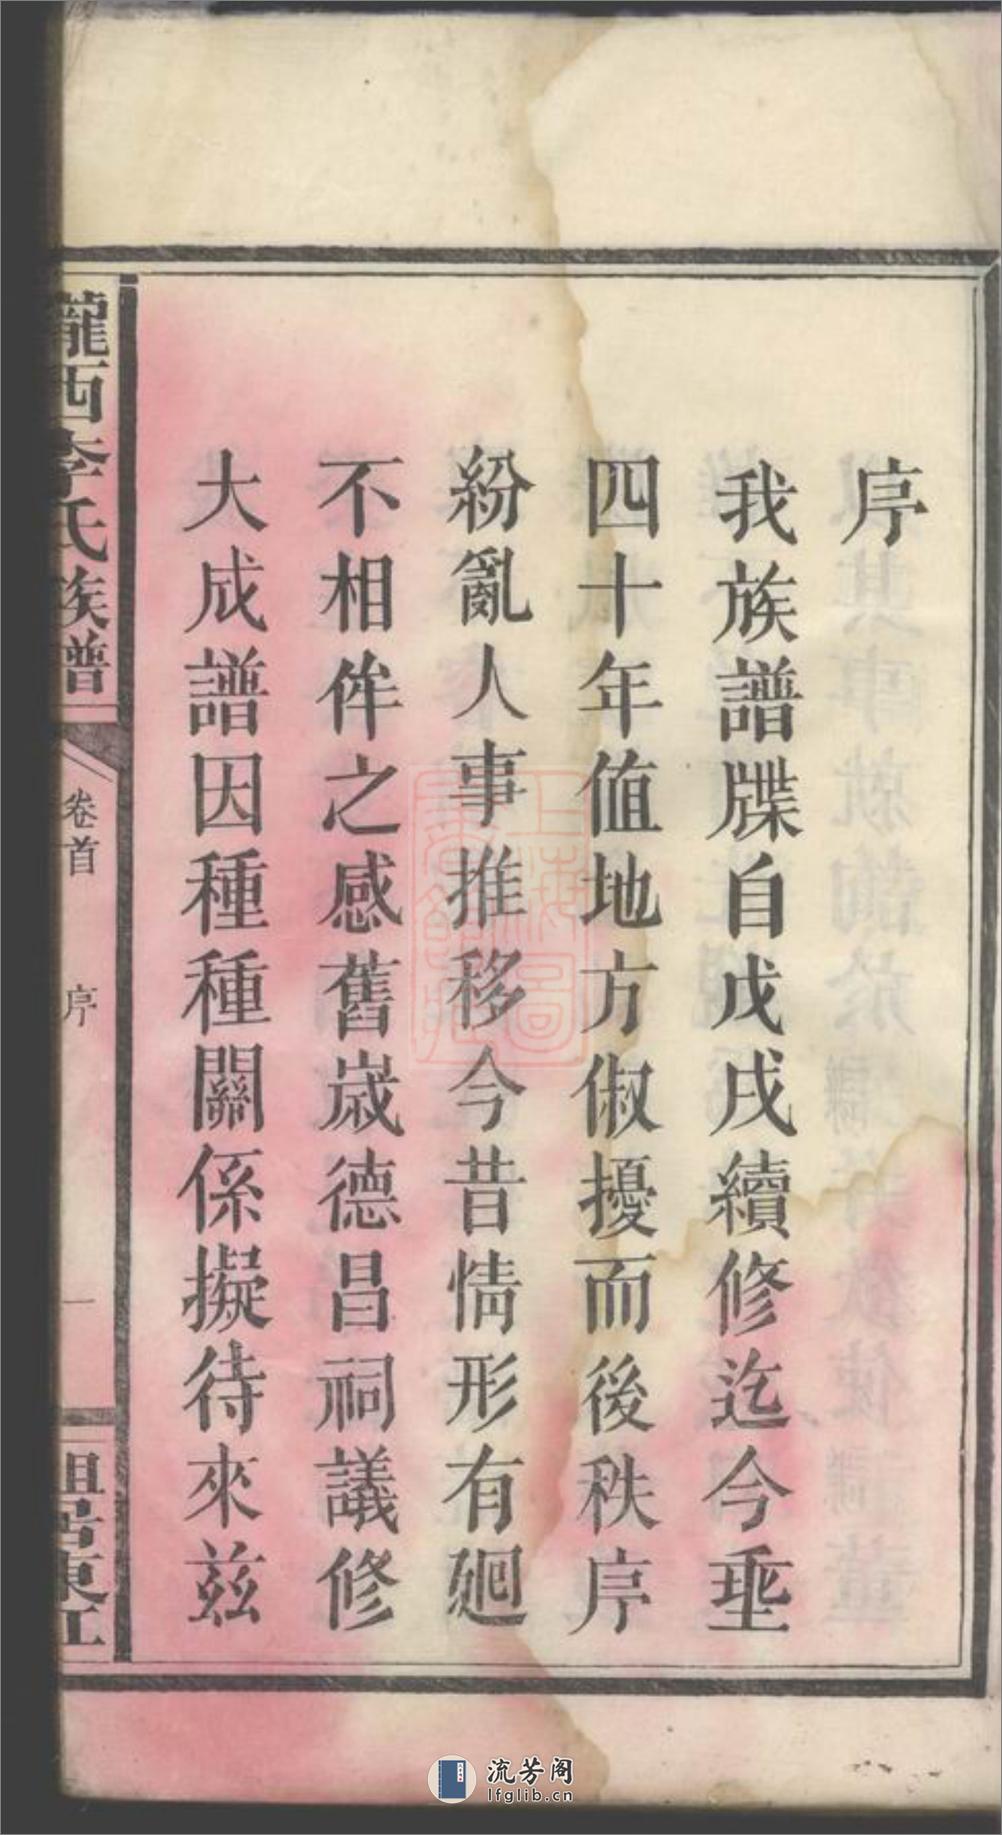 序
我族譜牒自戊戌續修迄今垂
四十年值地方俶擾而後秩序
紛亂人事推移今昔情形有廻
不相侔之感舊歲德昌祠議修
大成譜因種種關係擬待來茲
隴西李氏族譜
卷首
序
一
祖居東江
上海圖書館藏
流芳阁
lfglib.cn